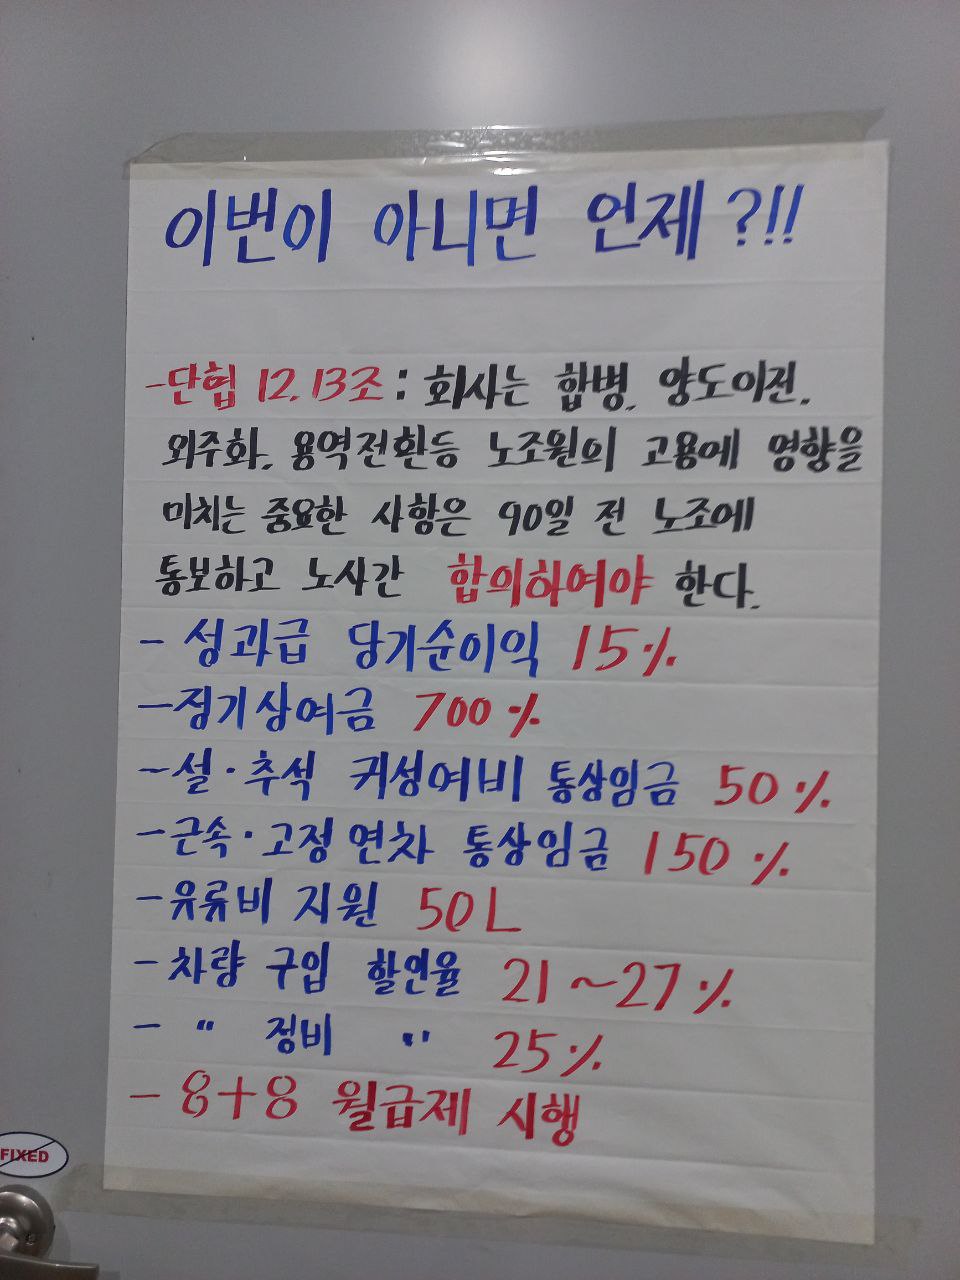 이번이 아니면 언제?!!
-단협 12.13조 : 회사는 합병. 양도이전.
외주화. 용역전환등 노조원의 고용에 영향을
미치는 중요한 사항은 90일 전 노조에
통보하고 노사간 합의하여야 한다.
- 성과급 당기순이익 15%
-정기상여금 700%
-설·추석 귀성여비 통상임금 50%
-근속·고정연차 통상임금 150%
-유류비 지원 50L
-차량 구입 할인율 21~27%
- " 정비 " 25%
- 8+8 월급제 시행
FIXED